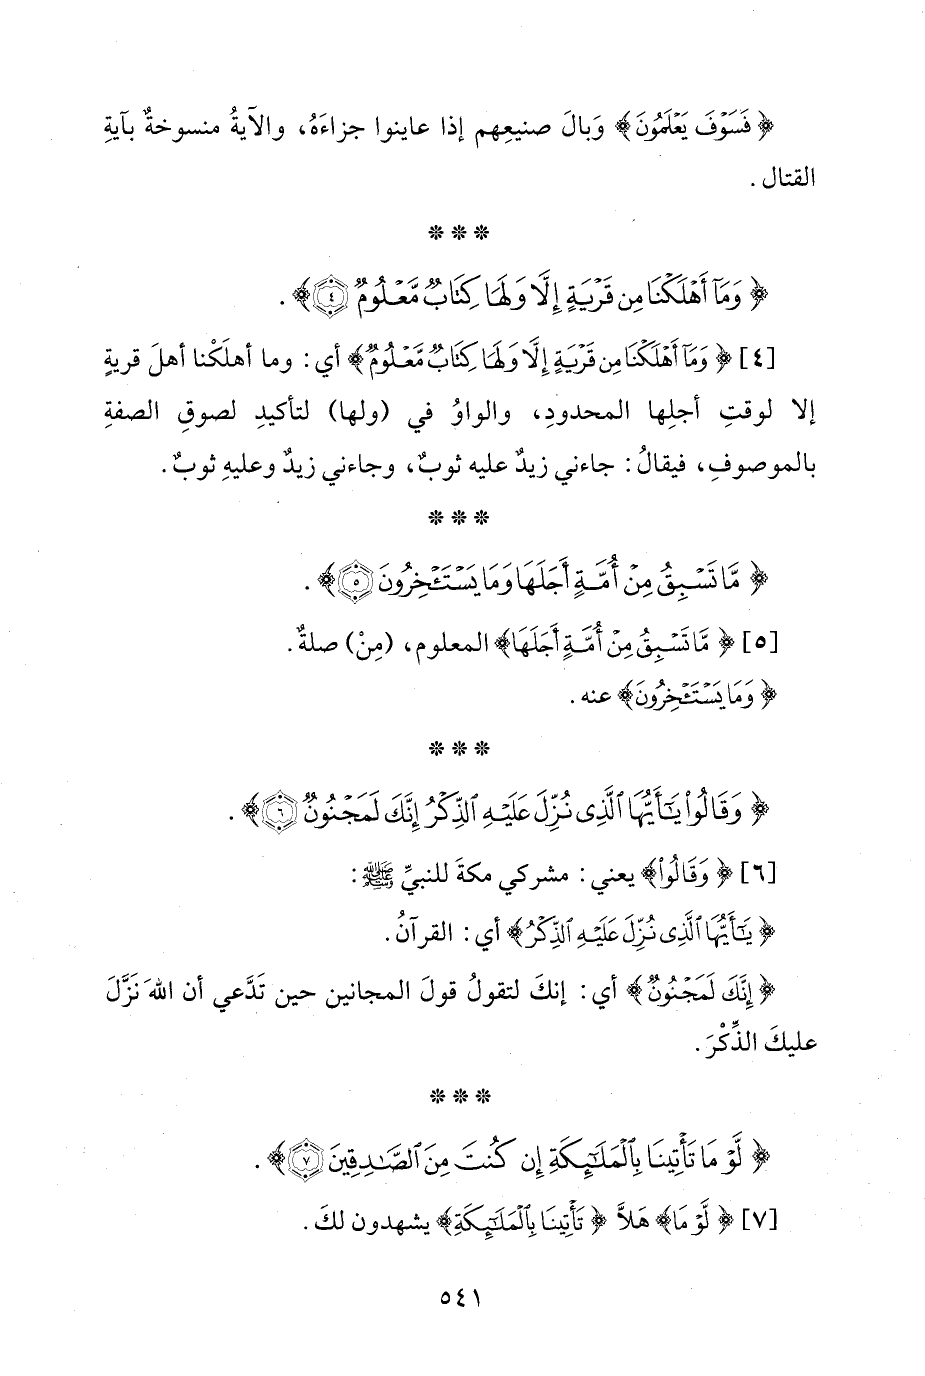 ﴿فَسَوْفَ يَعْلَمُونَ﴾ وَبالَ صنيعِهم إذا عاينوا جزاءَهُ، والآيةُ منسوخةٌ بآيةِ
القتال.
* * *
﴿وَمَآ أَهْلَكْنَا مِن قَرْيَةٍ إِلَّا وَلَهَا كِتَابٌ مَّعْلُومٌ ٤﴾.
[٤] ﴿وَمَآ أَهْلَكْنَا مِن قَرْيَةٍ إِلَّا وَلَهَا كِتَابٌ مَّعْلُومٌ﴾ أي: وما أهلَكْنا أهلَ قريةٍ
إلا لوقتِ أجلِها المحدودِ، والواوُ في (ولها) لتأكيدِ لصوقِ الصفةِ
بالموصوفِ، فيقالُ: جاءني زيدٌ عليه ثوبٌ، وجاءني زيدٌ وعليهِ ثوبٌ.
* * *
﴿مَّا تَسْبِقُ مِنْ أُمَّةٍ أَجَلَهَا وَمَا يَسْتَـْٔخِرُونَ ٥﴾.
[٥] ﴿مَّا تَسْبِقُ مِنْ أُمَّةٍ أَجَلَهَا﴾ المعلوم، (مِنْ) صلةٌ.
﴿وَمَا يَسْتَـْٔخِرُونَ﴾ عنه.
* * *
﴿وَقَالُوا۟ يَٰٓأَيُّهَا ٱلَّذِى نُزِّلَ عَلَيْهِ ٱلذِّكْرُ إِنَّكَ لَمَجْنُونٌ ٦﴾.
[٦] ﴿وَقَالُوا۟﴾ يعني: مشركي مكةَ للنبيِّ ﷺ:
﴿يَٰٓأَيُّهَا ٱلَّذِى نُزِّلَ عَلَيْهِ ٱلذِّكْرُ﴾ أي: القرآنُ.
﴿إِنَّكَ لَمَجْنُونٌ﴾ أي: إنكَ لتقولُ قولَ المجانين حين تَدَّعي أن اللهَ نَزَّلَ
عليكَ الذِّكْرَ.
* * *
﴿لَّوْ مَا تَأْتِينَا بِٱلْمَلَٰٓئِكَةِ إِن كُنتَ مِنَ ٱلصَّٰدِقِينَ ٧﴾.
[٧] ﴿لَّوْ مَا﴾ هَلاَّ ﴿تَأْتِينَا بِٱلْمَلَٰٓئِكَةِ﴾ يشهدون لكَ.
٥٤١